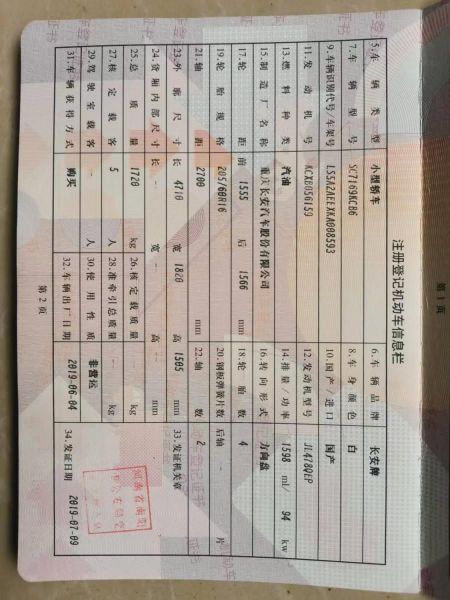 注册登记机动车信息栏
5.车辆类型 小型轿车 6.车辆品牌 长安牌
7.车辆型号 SC7169KCB6 8.车身颜色 白
9.车辆识别代号/车架号 LS5A2AEEXKA008593 10.国产/进口 国产
11.发动机号 KCXB056159 12.发动机型号 JL478QEP
13.燃料种类 汽油 14.排量/功率 1598 ml/ 94 kw
15.制造厂名称 重庆长安汽车股份有限公司 16.转向形式 方向盘
17.轮距 前 1555 后 1566 mm 18.轮胎数 4
19.轮胎规格 205/60R16 20.钢板弹簧片数 后轴 片
21.轴距 2700 mm 22.轴数 2
23.外廓尺寸 长 4710 宽 1820 高 1505 mm 33.发证机关章
24.货厢内部尺寸 长 宽 高 mm
25.总质量 1720 kg 26.核定载质量 kg
27.核定载客 5 人 28.准牵引总质量 kg
29.驾驶室载客 人 30.使用性质 非营运
31.车辆获得方式 购买 32.车辆出厂日期 2019-06-04 34.发证日期 2019-07-09
第2页
第1页